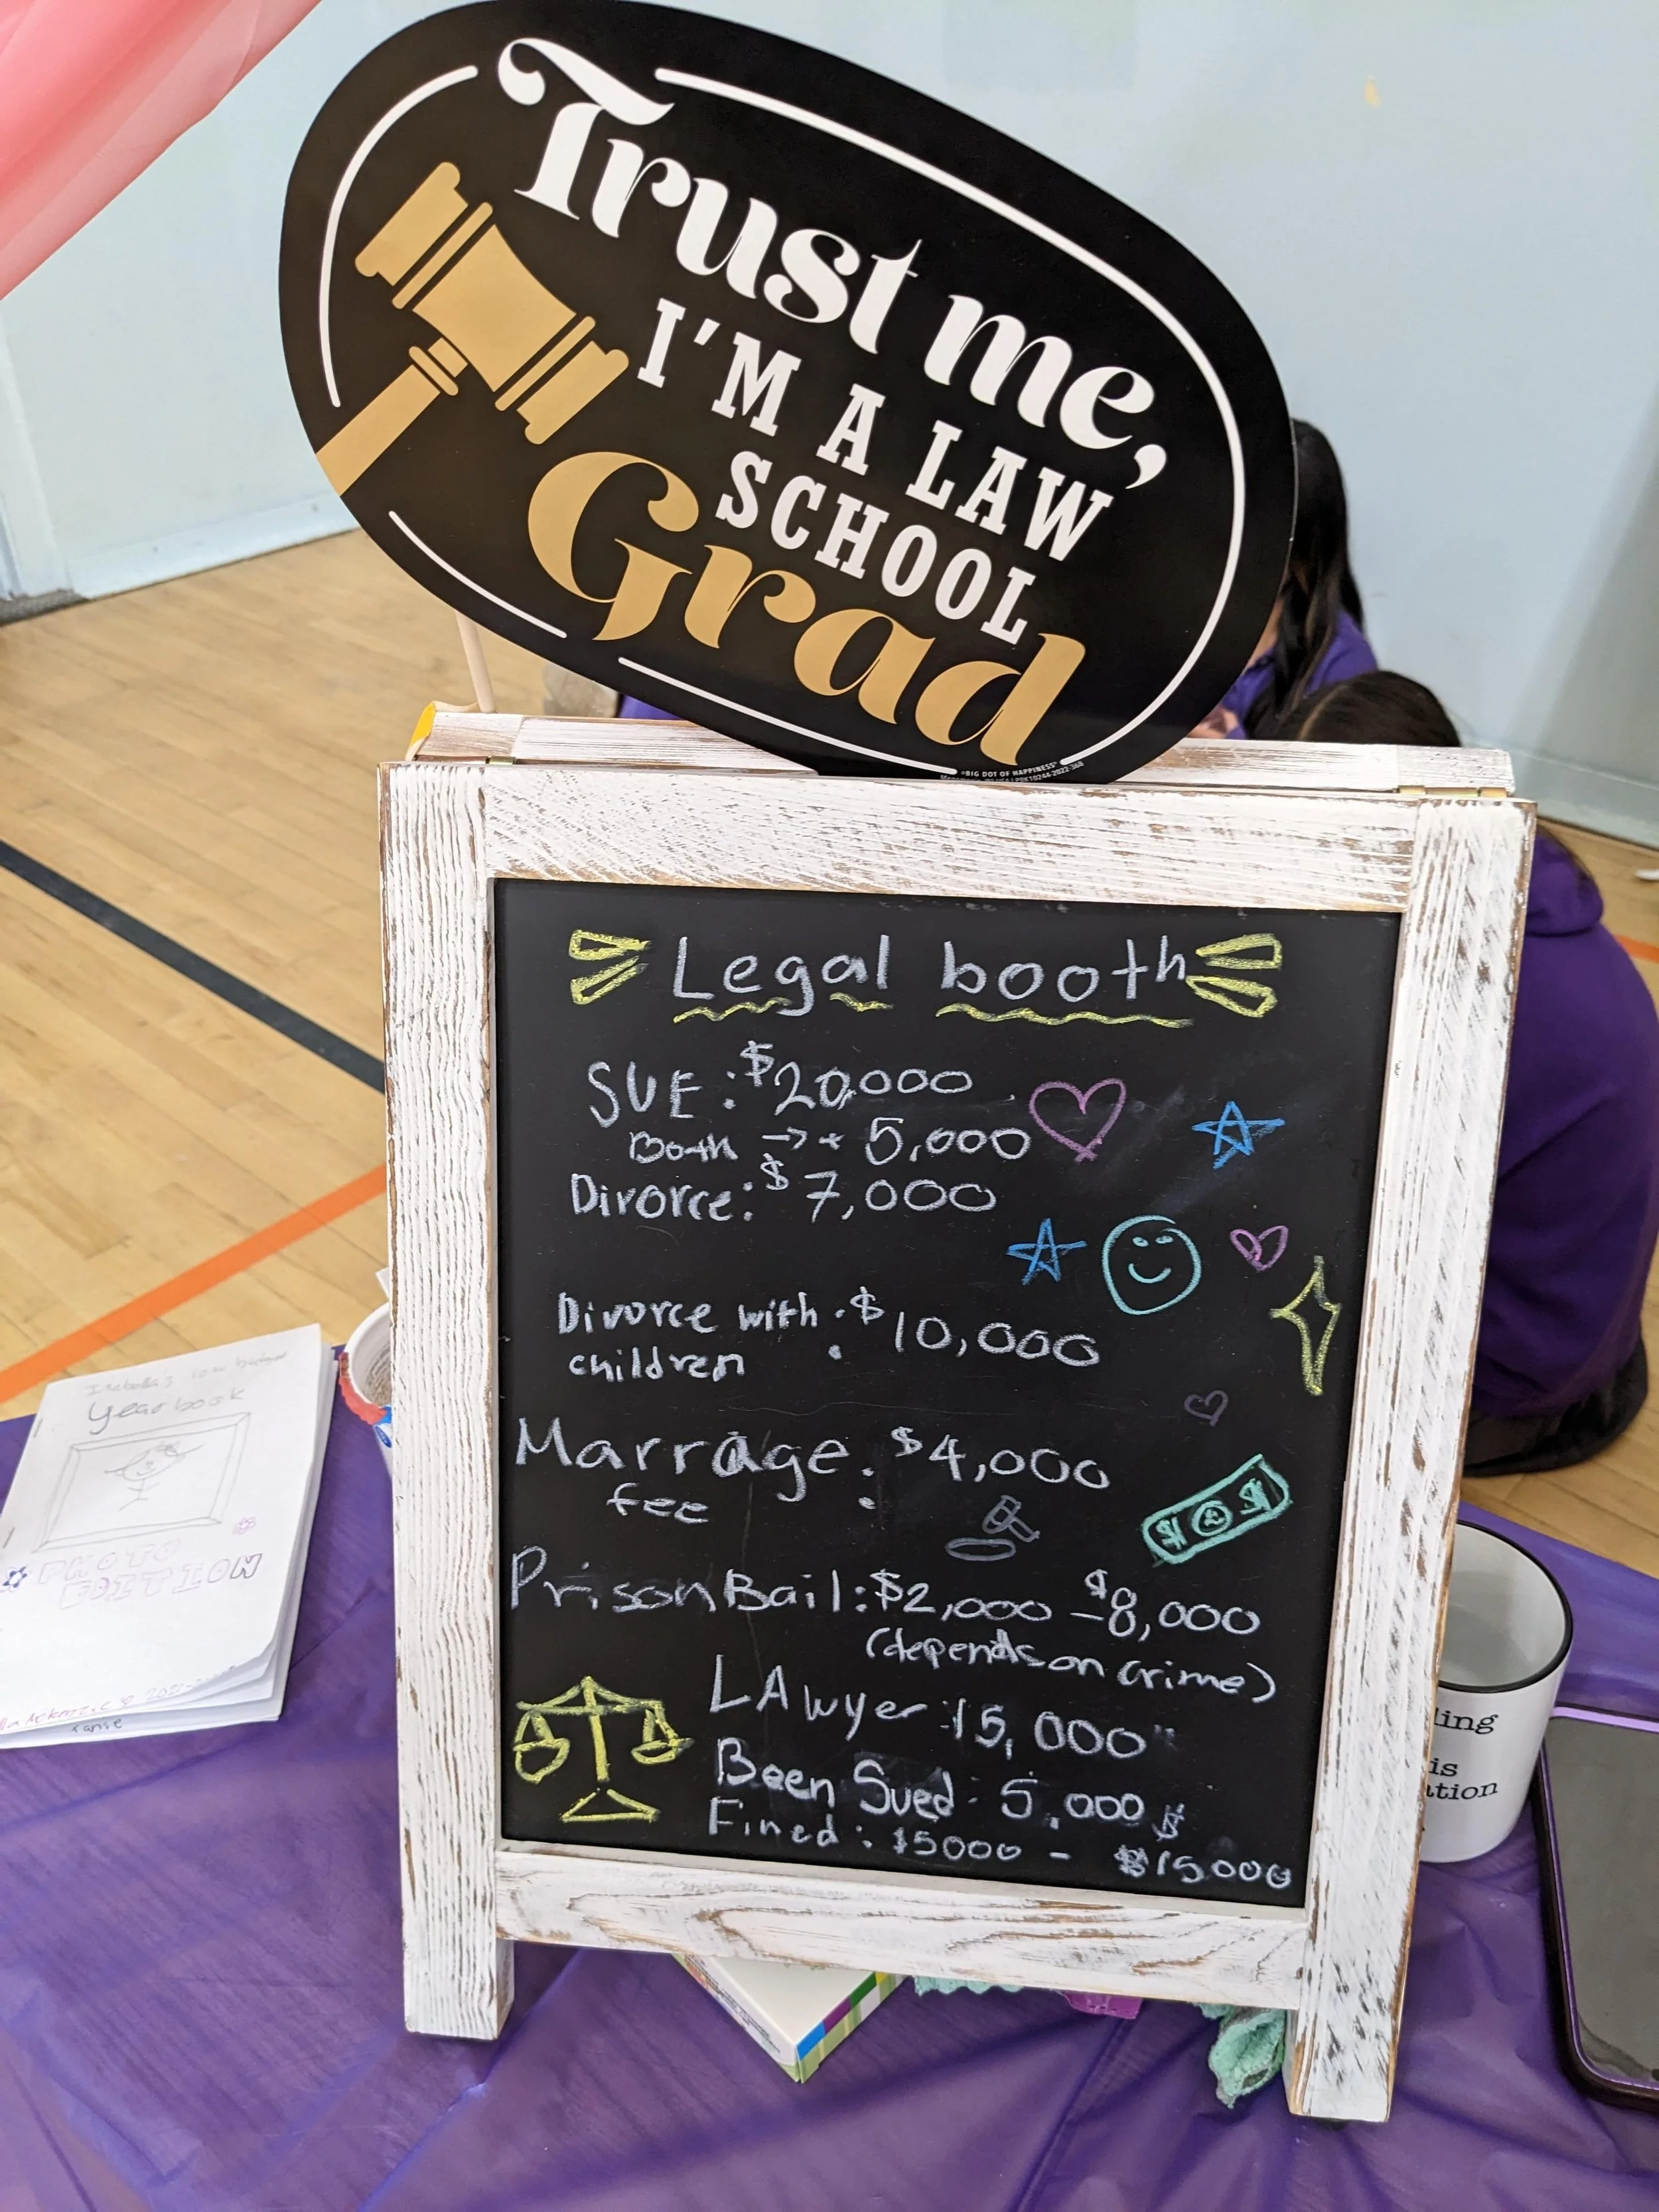 Trust me,
I'M A LAW
SCHOOL
Grad
©BIG DOT OF HAPPINESS
Legal booth
SUE: $20,000
Booth → + 5,000
Divorce: $7,000
Divorce with : $10,000
children
Marrage : $4,000
fee
Prison Bail: $2,000 - $8,000
(depends on crime)
LAwyer $15,000
Been Sued: 5,000 $
Fined: $5000 - $15000
Isabella's low budget
Yearbook
PHOTO
EDITION
ling
is
ation